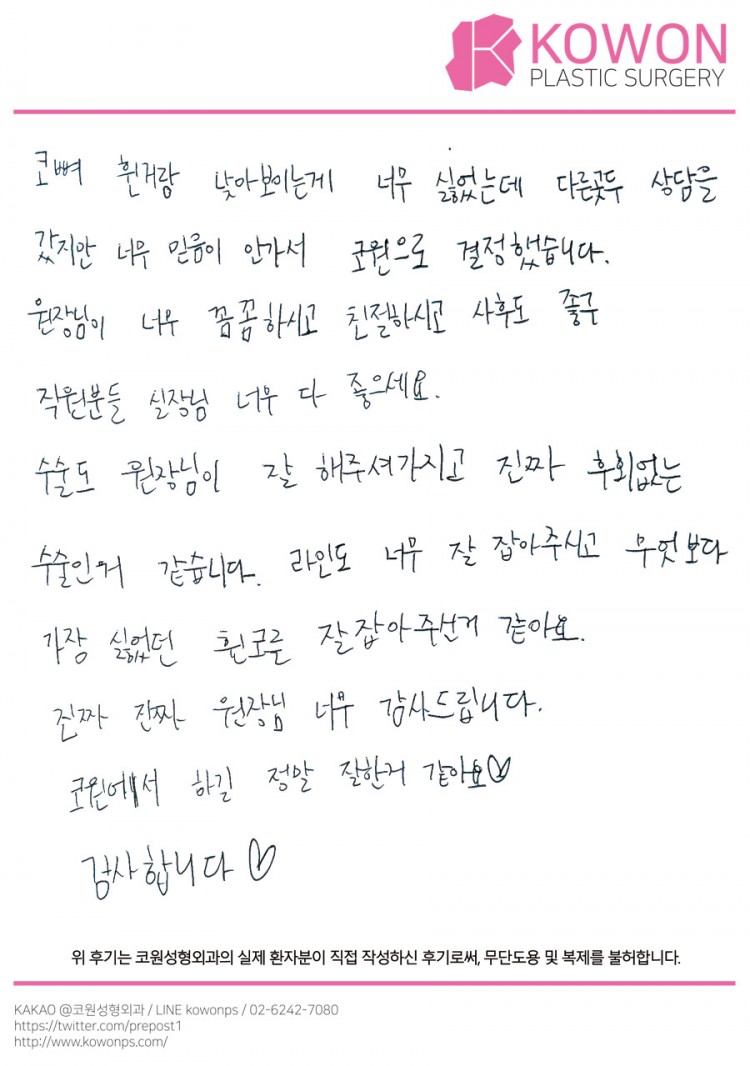 KOWON
PLASTIC SURGERY
코뼈 휜거랑 낮아보이는게 너무 싫었는데 다른곳두 상담을
갔지만 너무 믿음이 안가서 코원으로 결정했습니다.
원장님이 너무 꼼꼼하시고 친절하시고 사후도 좋구
직원분들 실장님 너무 다 좋으세요.
수술도 원장님이 잘 해주셔가지고 진짜 후회없는
수술인거 같습니다. 라인도 너무 잘 잡아주시고 무엇보다
가장 싫었던 휜코를 잘잡아주신거 같아요.
진짜 진짜 원장님 너무 감사드립니다.
코원에서 하길 정말 잘한거 같아요♡
감사합니다♡
위 후기는 코원성형외과의 실제 환자분이 직접 작성하신 후기로써, 무단도용 및 복제를 불허합니다.
KAKAO @코원성형외과 / LINE kowonps / 02-6242-7080
https://twitter.com/prepost1
http://www.kowonps.com/